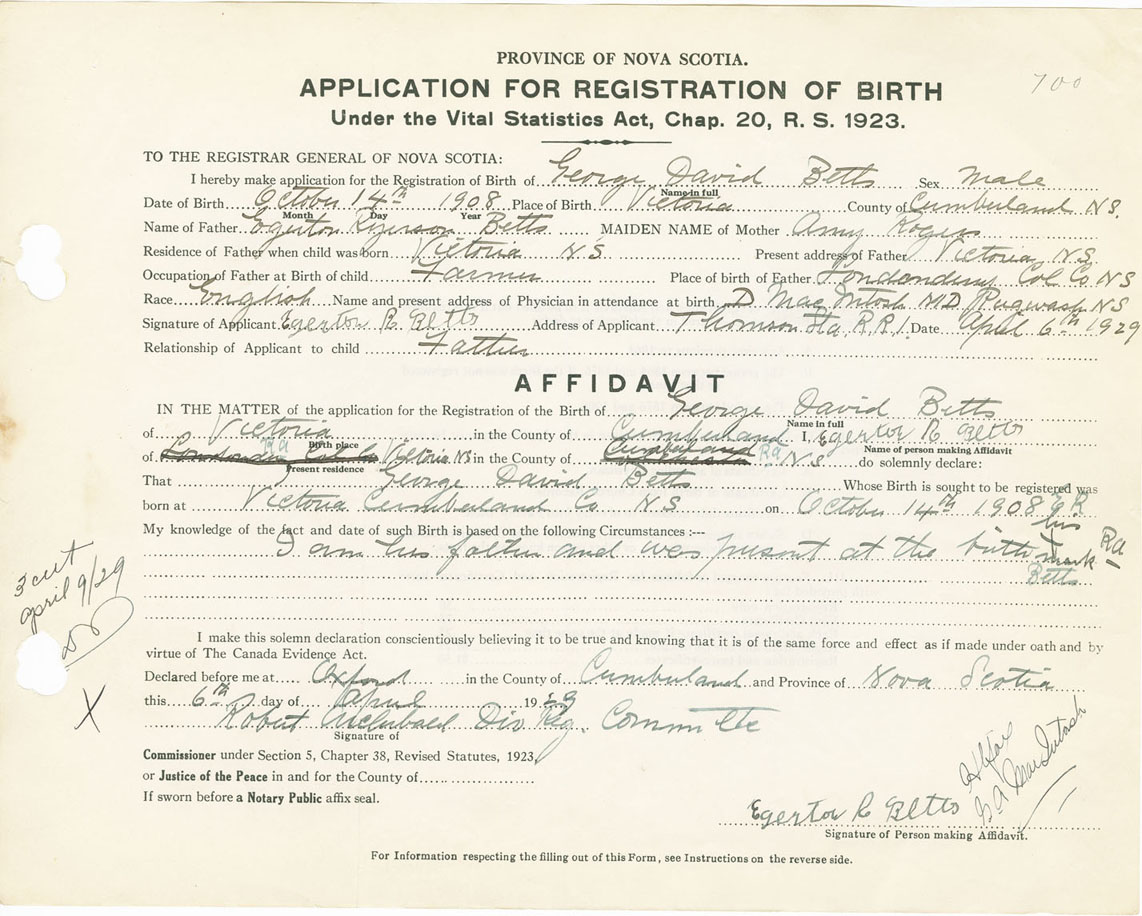 700
PROVINCE OF NOVA SCOTIA.
APPLICATION FOR REGISTRATION OF BIRTH
Under the Vital Statistics Act, Chap. 20, R. S. 1923.
TO THE REGISTRAR GENERAL OF NOVA SCOTIA:
I hereby make application for the Registration of Birth of George David Betts Sex Male
Name in full
Date of Birth October 14th 1908 Place of Birth Victoria County of Cumberland N.S.
Month Day Year
Name of Father Egerton Ryerson Betts MAIDEN NAME of Mother Amy Rogers
Residence of Father when child was born Victoria N.S. Present address of Father Victoria N.S.
Occupation of Father at Birth of child Farmer Place of birth of Father Londonderry Col Co NS
Race English Name and present address of Physician in attendance at birth D MacIntosh MD Pugwash NS
Signature of Applicant Egerton R Betts Address of Applicant Thomson Sta, R R 1. Date April 6th 1929
Relationship of Applicant to child Father
AFFIDAVIT
IN THE MATTER of the application for the Registration of the Birth of George David Betts
Name in full
of Victoria in the County of Cumberland I, Egerton R Betts
Birth place Name of person making Affidavit
of Londonderry Col Co RA Victoria NS in the County of Cumberland RA NS do solemnly declare:
Present residence
That George David Betts Whose Birth is sought to be registered was
born at Victoria Cumberland Co N S on October 14th 1908 E R
My knowledge of the fact and date of such Birth is based on the following Circumstances :---
his
I am his father and was present at the birth x mark RA
Betts
3 cut
april 9/29
I make this solemn declaration conscientiously believing it to be true and knowing that it is of the same force and effect as if made under oath and by
virtue of The Canada Evidence Act.
Declared before me at Oxford in the County of Cumberland and Province of Nova Scotia
this 6th day of April 1929
X
Robert Archibald Div Reg. Committe
Signature of
Commissioner under Section 5, Chapter 38, Revised Statutes, 1923,
or Justice of the Peace in and for the County of
If sworn before a Notary Public affix seal.
MacIntosh
Egerton R Betts
Signature of Person making Affidavit.
For Information respecting the filling out of this Form, see Instructions on the reverse side.